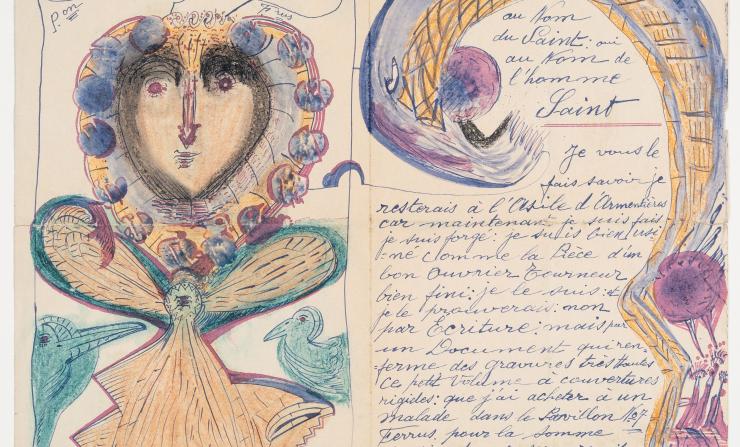 p.on
au Nom
du Saint: oui
au Nom de
l'homme
Saint
Je vous le
fais savoir je
resterais à l'Asile d'Armentières
car maintenant je suis fais
je suis forgé: je suis bien usi-
-né comme la Pièce d'un
bon Ouvrier Tourneur
bien fini: je le suis: et
je le prouverais: non
par Ecriture: mais par
un Document qui ren-
ferme des gravures très Hautes
Ce petit Volume à couvertures
rigides: que j'ai acheter à un
malade dans le Pavillon No7
Ferrus, pour la somme: